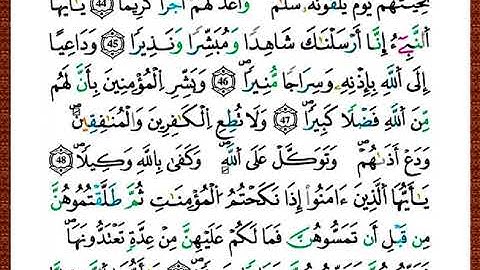 تَحِيَّتُهُمْ يَوْمَ يَلْقَوْنَهُۥ سَلَٰمٌ وَأَعَدَّ لَهُمْ أَجْرًا كَرِيمًا ٤٤ يَٰٓأَيُّهَا
ٱلنَّبِيُّ إِنَّآ أَرْسَلْنَٰكَ شَٰهِدًا وَمُبَشِّرًا وَنَذِيرًا ٤٥ وَدَاعِيًا
إِلَى ٱللَّهِ بِإِذْنِهِۦ وَسِرَاجًا مُّنِيرًا ٤٦ وَبَشِّرِ ٱلْمُؤْمِنِينَ بِأَنَّ لَهُم
مِّنَ ٱللَّهِ فَضْلًا كَبِيرًا ٤٧ وَلَا تُطِعِ ٱلْكَٰفِرِينَ وَٱلْمُنَٰفِقِينَ
وَدَعْ أَذَىٰهُمْ وَتَوَكَّلْ عَلَى ٱللَّهِ وَكَفَىٰ بِٱللَّهِ وَكِيلًا ٤٨
يَٰٓأَيُّهَا ٱلَّذِينَ ءَامَنُوٓا۟ إِذَا نَكَحْتُمُ ٱلْمُؤْمِنَٰتِ ثُمَّ طَلَّقْتُمُوهُنَّ
مِن قَبْلِ أَن تَمَسُّوهُنَّ فَمَا لَكُمْ عَلَيْهِنَّ مِنْ عِدَّةٍ تَعْتَدُّونَهَا